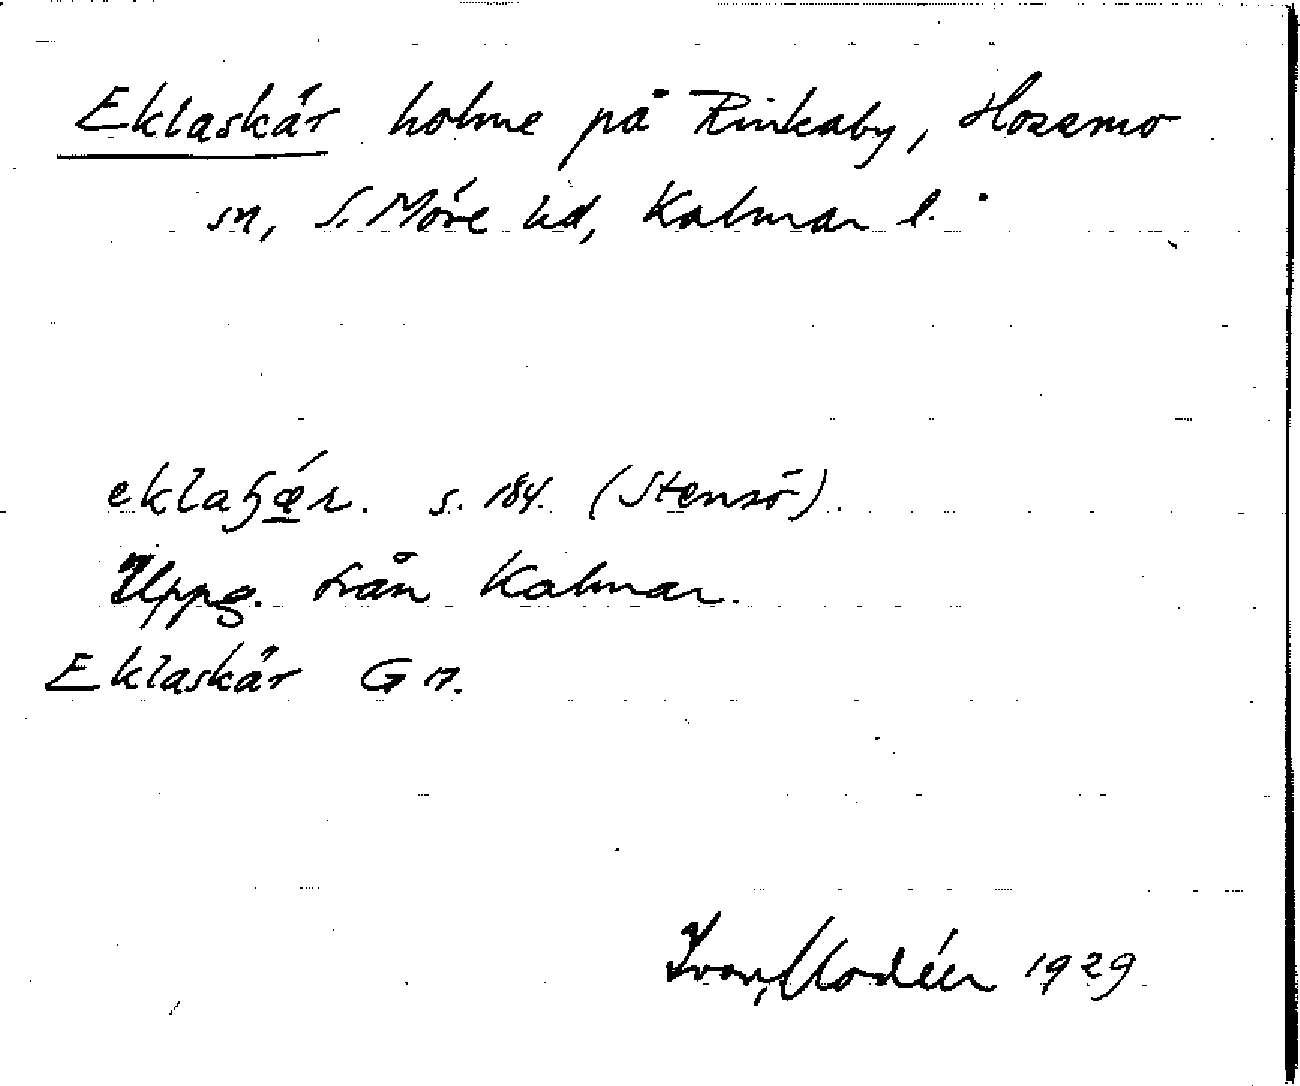 Eklaskär holme på Rinkaby, Hossmo
sn, S. Möre hd, Kalmar l.
s. 184. (Stensö).
Uppg. från Kalmar.
Eklaskär G n.
Ivar Modéer 1929